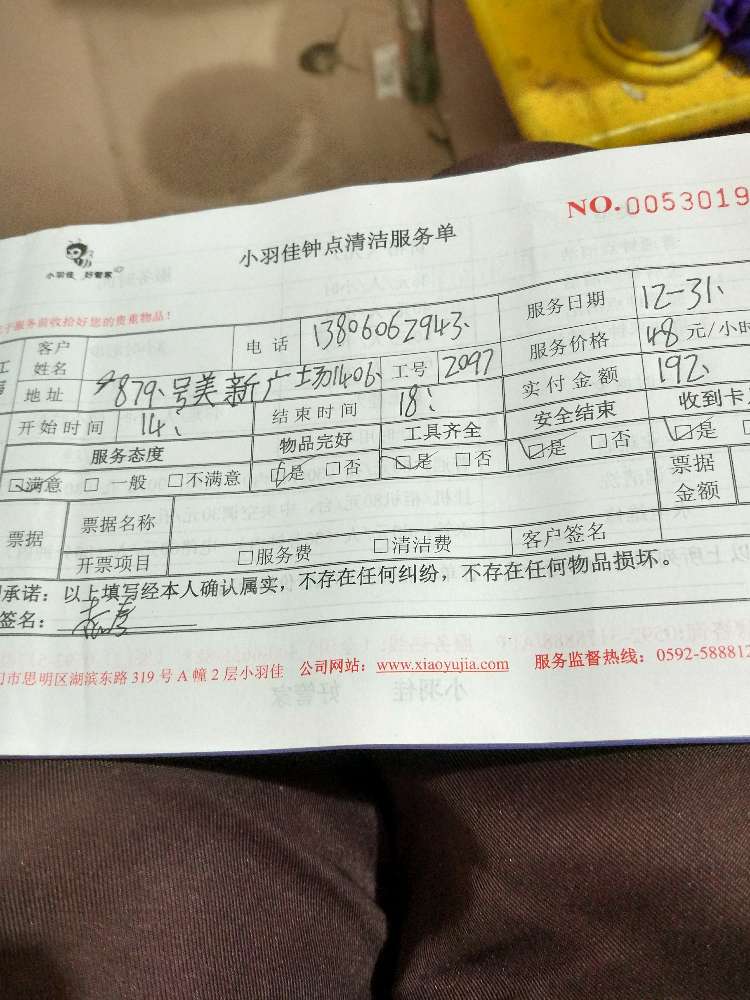 NO.0053019
小羽佳钟点清洁服务单
小羽佳 好管家
于服务前收拾好您的贵重物品！
客户姓名 电话 13806062943 服务日期 12-31
地址 879号美新广场1406 工号 2097 服务价格 48 元/小时
开始时间 14: 结束时间 18: 实付金额 192
服务态度 物品完好 工具齐全 安全结束 收到卡
☑满意 □一般 □不满意 ☑是 □否 ☑是 □否 ☑是 □否 ☑是
票据 票据名称 票据金额
开票项目 □服务费 □清洁费 客户签名
承诺：以上填写经本人确认属实，不存在任何纠纷，不存在任何物品损坏。
签名：
门市思明区湖滨东路 319 号 A 幢 2 层小羽佳 公司网站：www.xiaoyujia.com 服务监督热线：0592-588812